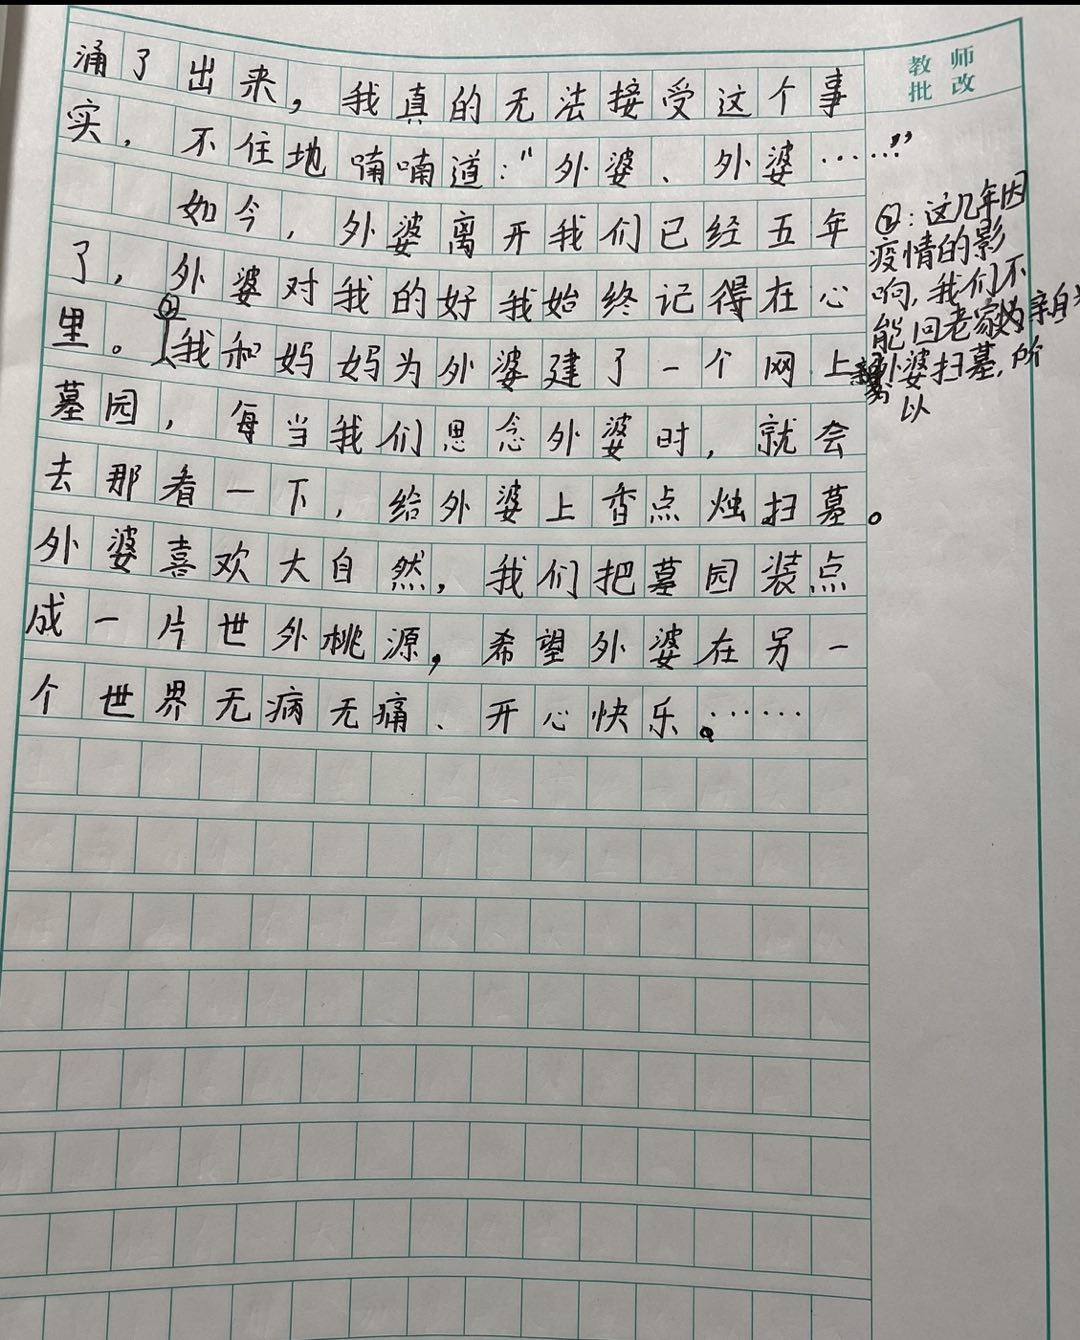 涌了出来，我真的无法接受这个事
实，不住地喃喃道：“外婆、外婆……”
如今，外婆离开我们已经五年
了，外婆对我的好我始终记得在心
里。②我和妈妈为外婆建了一个网上
墓园，每当我们思念外婆时，就会
去那看一下，给外婆上香点烛扫墓。
外婆喜欢大自然，我们把墓园装点
成一片世外桃源，希望外婆在另一
个世界无病无痛、开心快乐。……
教师
批改
②：这几年因
疫情的影
响，我们不
能回老家为亲自为
外婆扫墓，所
以